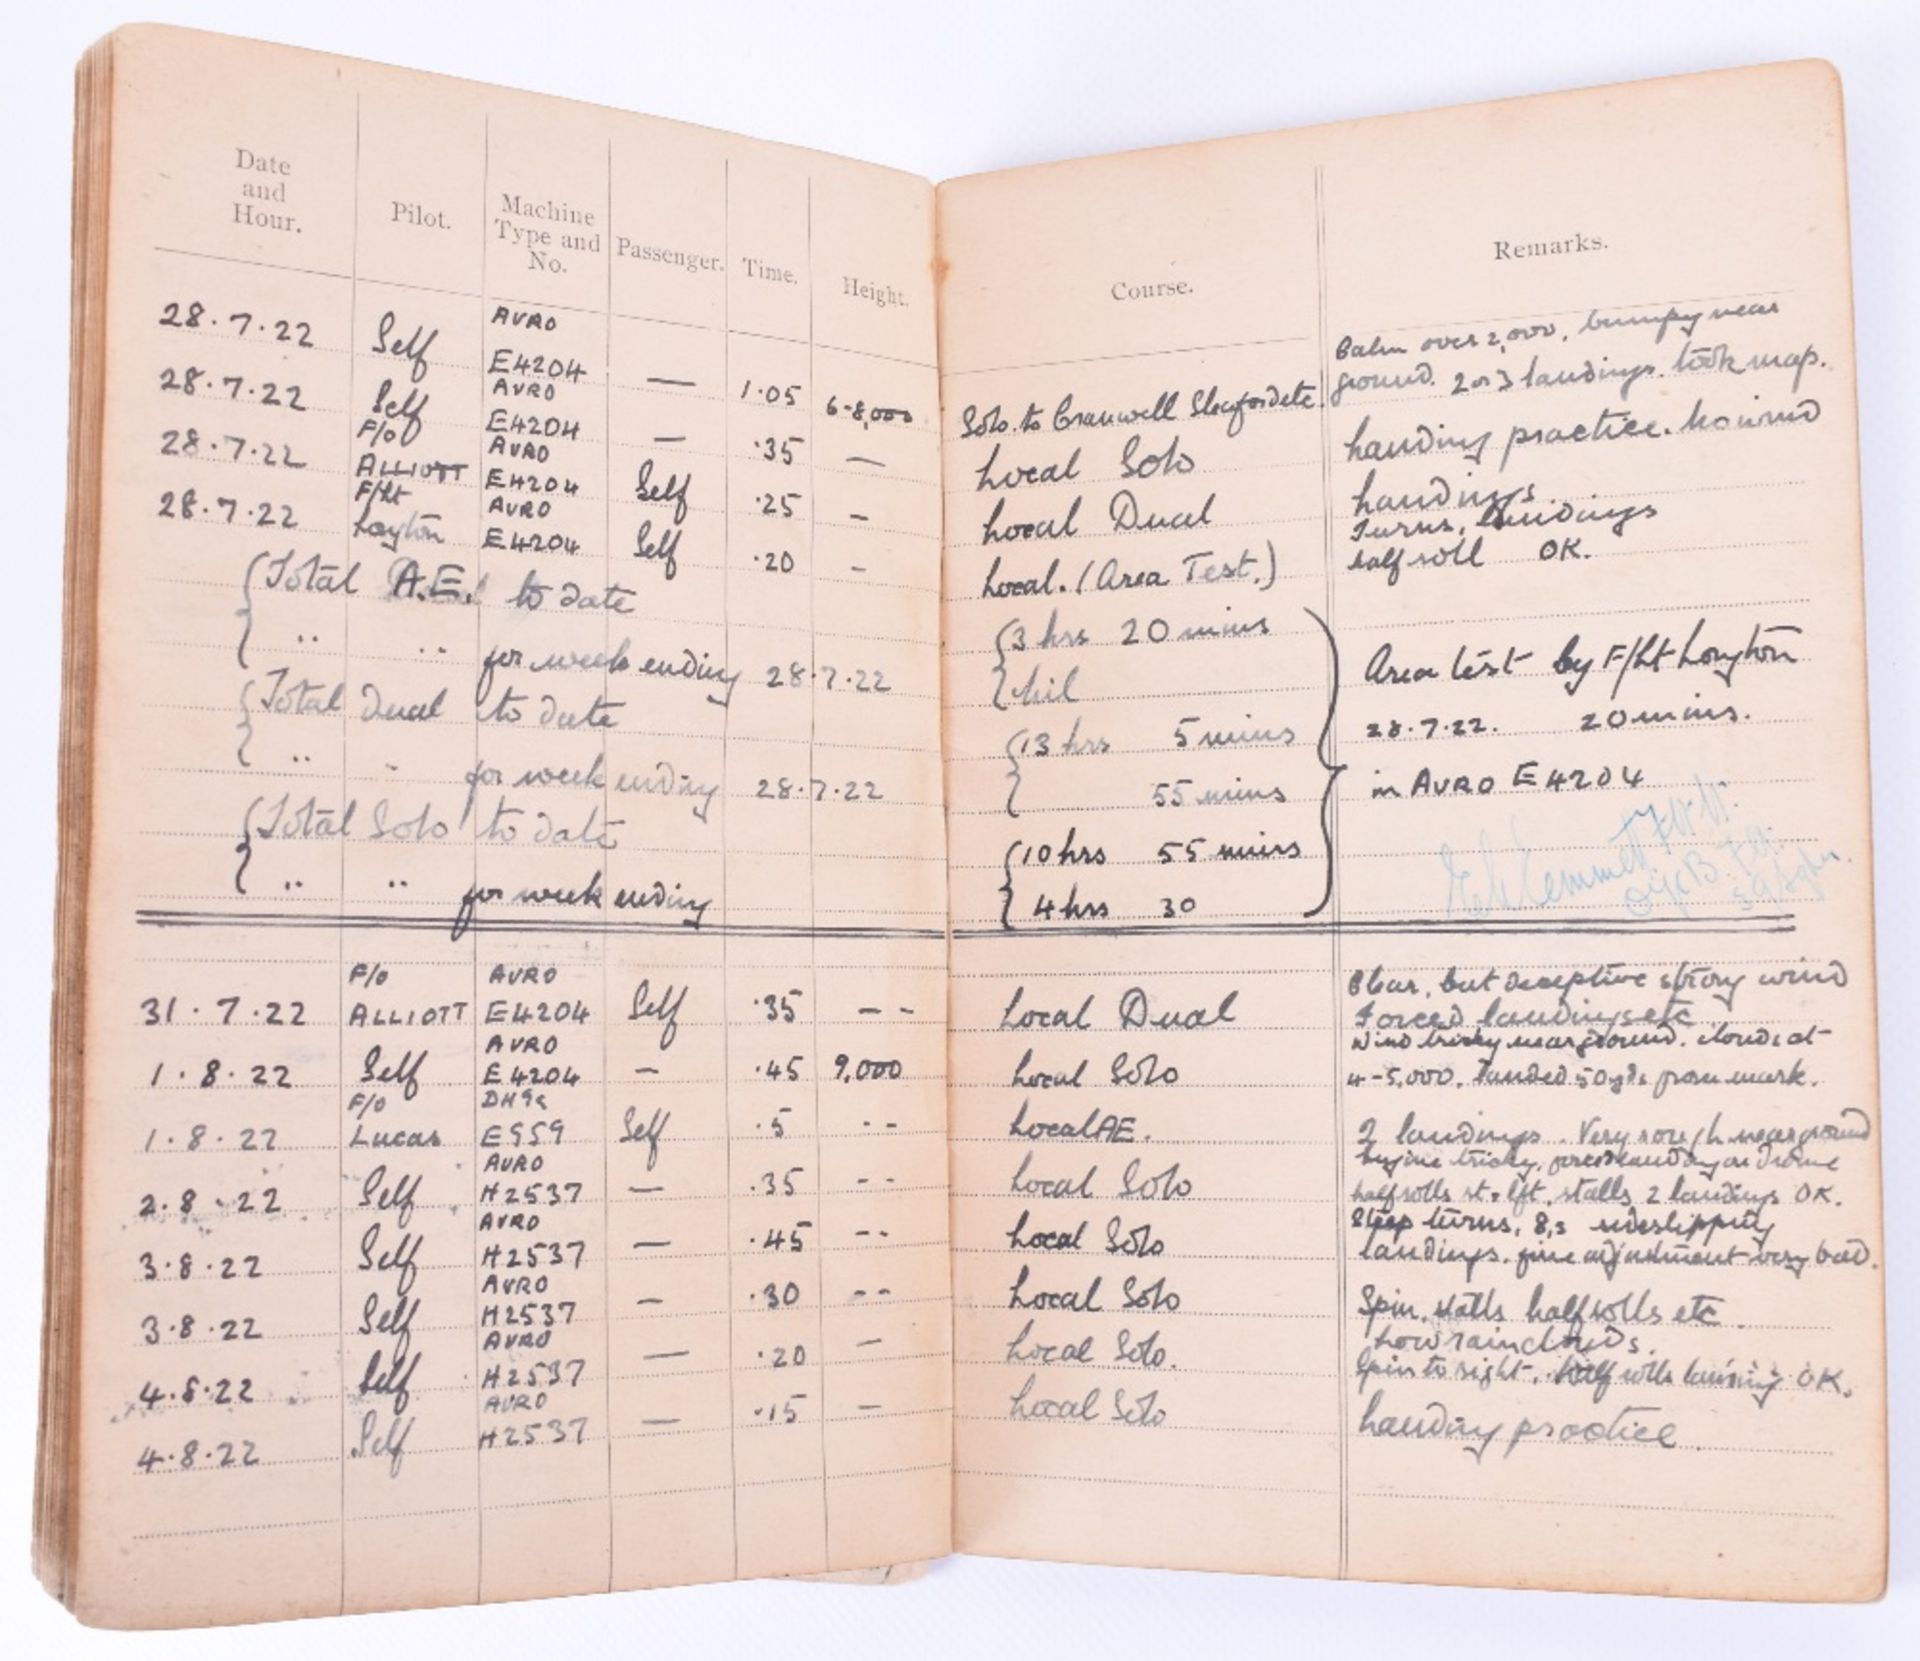 Date
and
Hour.
Pilot.
Machine
Type and
No.
Passenger.
Time.
Height.
Course.
Remarks.
28.7.22 Self AVRO E4204 — 1.05 6-8,000 Solo to Cranwell Sleaford etc.
Calm over 2,000, bumpy near
ground. 2 or 3 landings. took map.
28.7.22 Self AVRO E4204 — .35 — Local Solo
Landing practice. No wind
28.7.22 F/O ALLIOTT AVRO E4204 Self .25 — Local Dual
Landings.
28.7.22 F/Lt Loyton AVRO E4204 Self .20 — Local. (Area Test.)
Turns, landings
half roll OK.
Total A.E. to date 3 hrs 20 mins
.. .. for week ending 28.7.22 Nil
Total Dual to date 13 hrs 5 mins
.. .. for week ending 28.7.22 55 mins
Total Solo to date 10 hrs 55 mins
.. .. for week ending 4 hrs 30
Area test by F/Lt Loyton
28.7.22. 20 mins.
in AVRO E4204
Emmett
B
31.7.22 F/O ALLIOTT AVRO E4204 Self .35 -- Local Dual
Clear, but deceptive strong wind
Forced landings etc
1.8.22 Self AVRO E4204 — .45 9,000 Local Solo
Wind tricky near ground. clouds at
4-5,000. Landed 50 yds from mark.
1.8.22 F/O Lucas DH9a E959 Self .5 -- Local AE.
2 landings. Very rough near ground
2.8.22 Self AVRO H2537 — .35 -- Local Solo
Engine tricky, forced landing on drome
half rolls rt & lft. stalls 2 landings OK.
3.8.22 Self AVRO H2537 — .45 -- Local Solo
Steep turns, 8,s sideslipping
landings. fine adjustment very bad.
3.8.22 Self AVRO H2537 — .30 -- Local Solo
Spin, stalls half rolls etc.
4.8.22 Self AVRO H2537 — .20 — Local Solo.
Low rain clouds.
Spin to right. Half rolls landing OK.
4.8.22 Self AVRO H2537 — .15 — Local Solo
Landing practice.